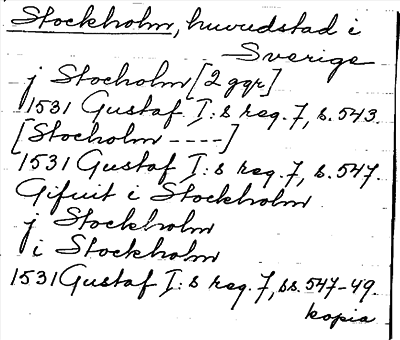 Stockholm, huvudstad i
Sverige
j Stocholm [2 ggr]
1531 Gustaf I:s reg. 7, s. 543.
[Stocholm ----]
1531 Gustaf I:s reg. 7, s. 547.
Gifuit i Stockholm
j Stockholm
i Stockholm
1531 Gustaf I:s reg. 7, ss. 547-49.
kopia